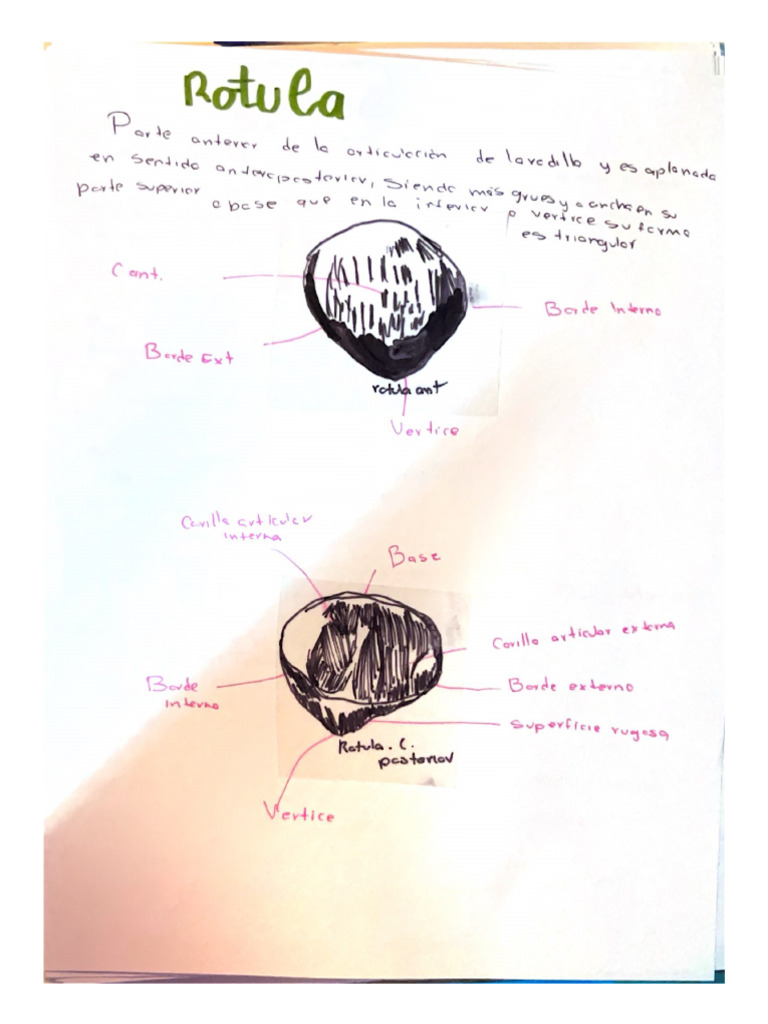 Rotula
Parte anterer de la articulación de la rodilla y es aplanada
en sentido anteroposterior, siendo más gruesa y ancha en su
parte superior o base que en la inferior o vertice su forma
es triangular
C ant.
Borde Interno
Borde Ext
rotula ant
Vertice
Carilla articular
interna
Base
Carilla articular externa
Borde
interno
Borde externo
Superficie rugosa
Rotula. C.
posterior
Vertice